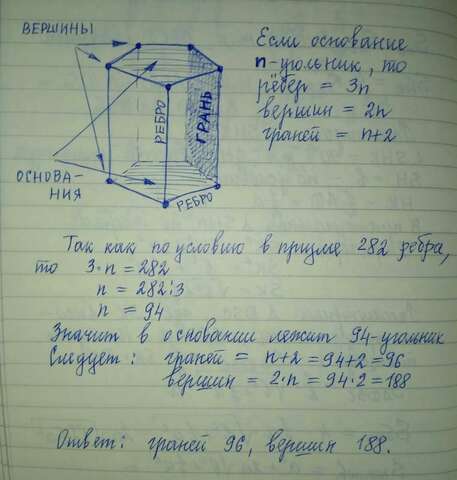 ВЕРШИНЫ
РЕБРО
ГРАНЬ
ОСНОВА-
НИЯ
РЕБРО
Если основание
n-угольник, то
рёбер = 3n
вершин = 2n
граней = n+2
Так как по условию в призме 282 ребра,
то 3·n = 282
n = 282:3
n = 94
Значит в основании лежит 94-угольник
Следует: граней = n+2 = 94+2 = 96
вершин = 2·n = 94·2 = 188
Ответ: граней 96, вершин 188.